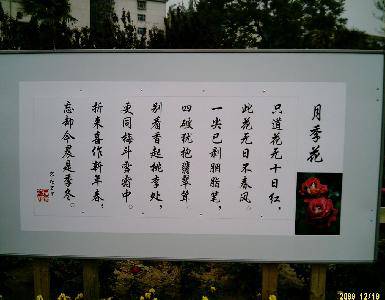 月季花
只道花无十日红，
此花无日不春风。
一尖已剥胭脂笔，
四破犹抱翡翠茸
别有香超桃李外，
更同梅斗雪霜中。
折来喜作新年看，
忘却今晨是季冬。
2009 12/18